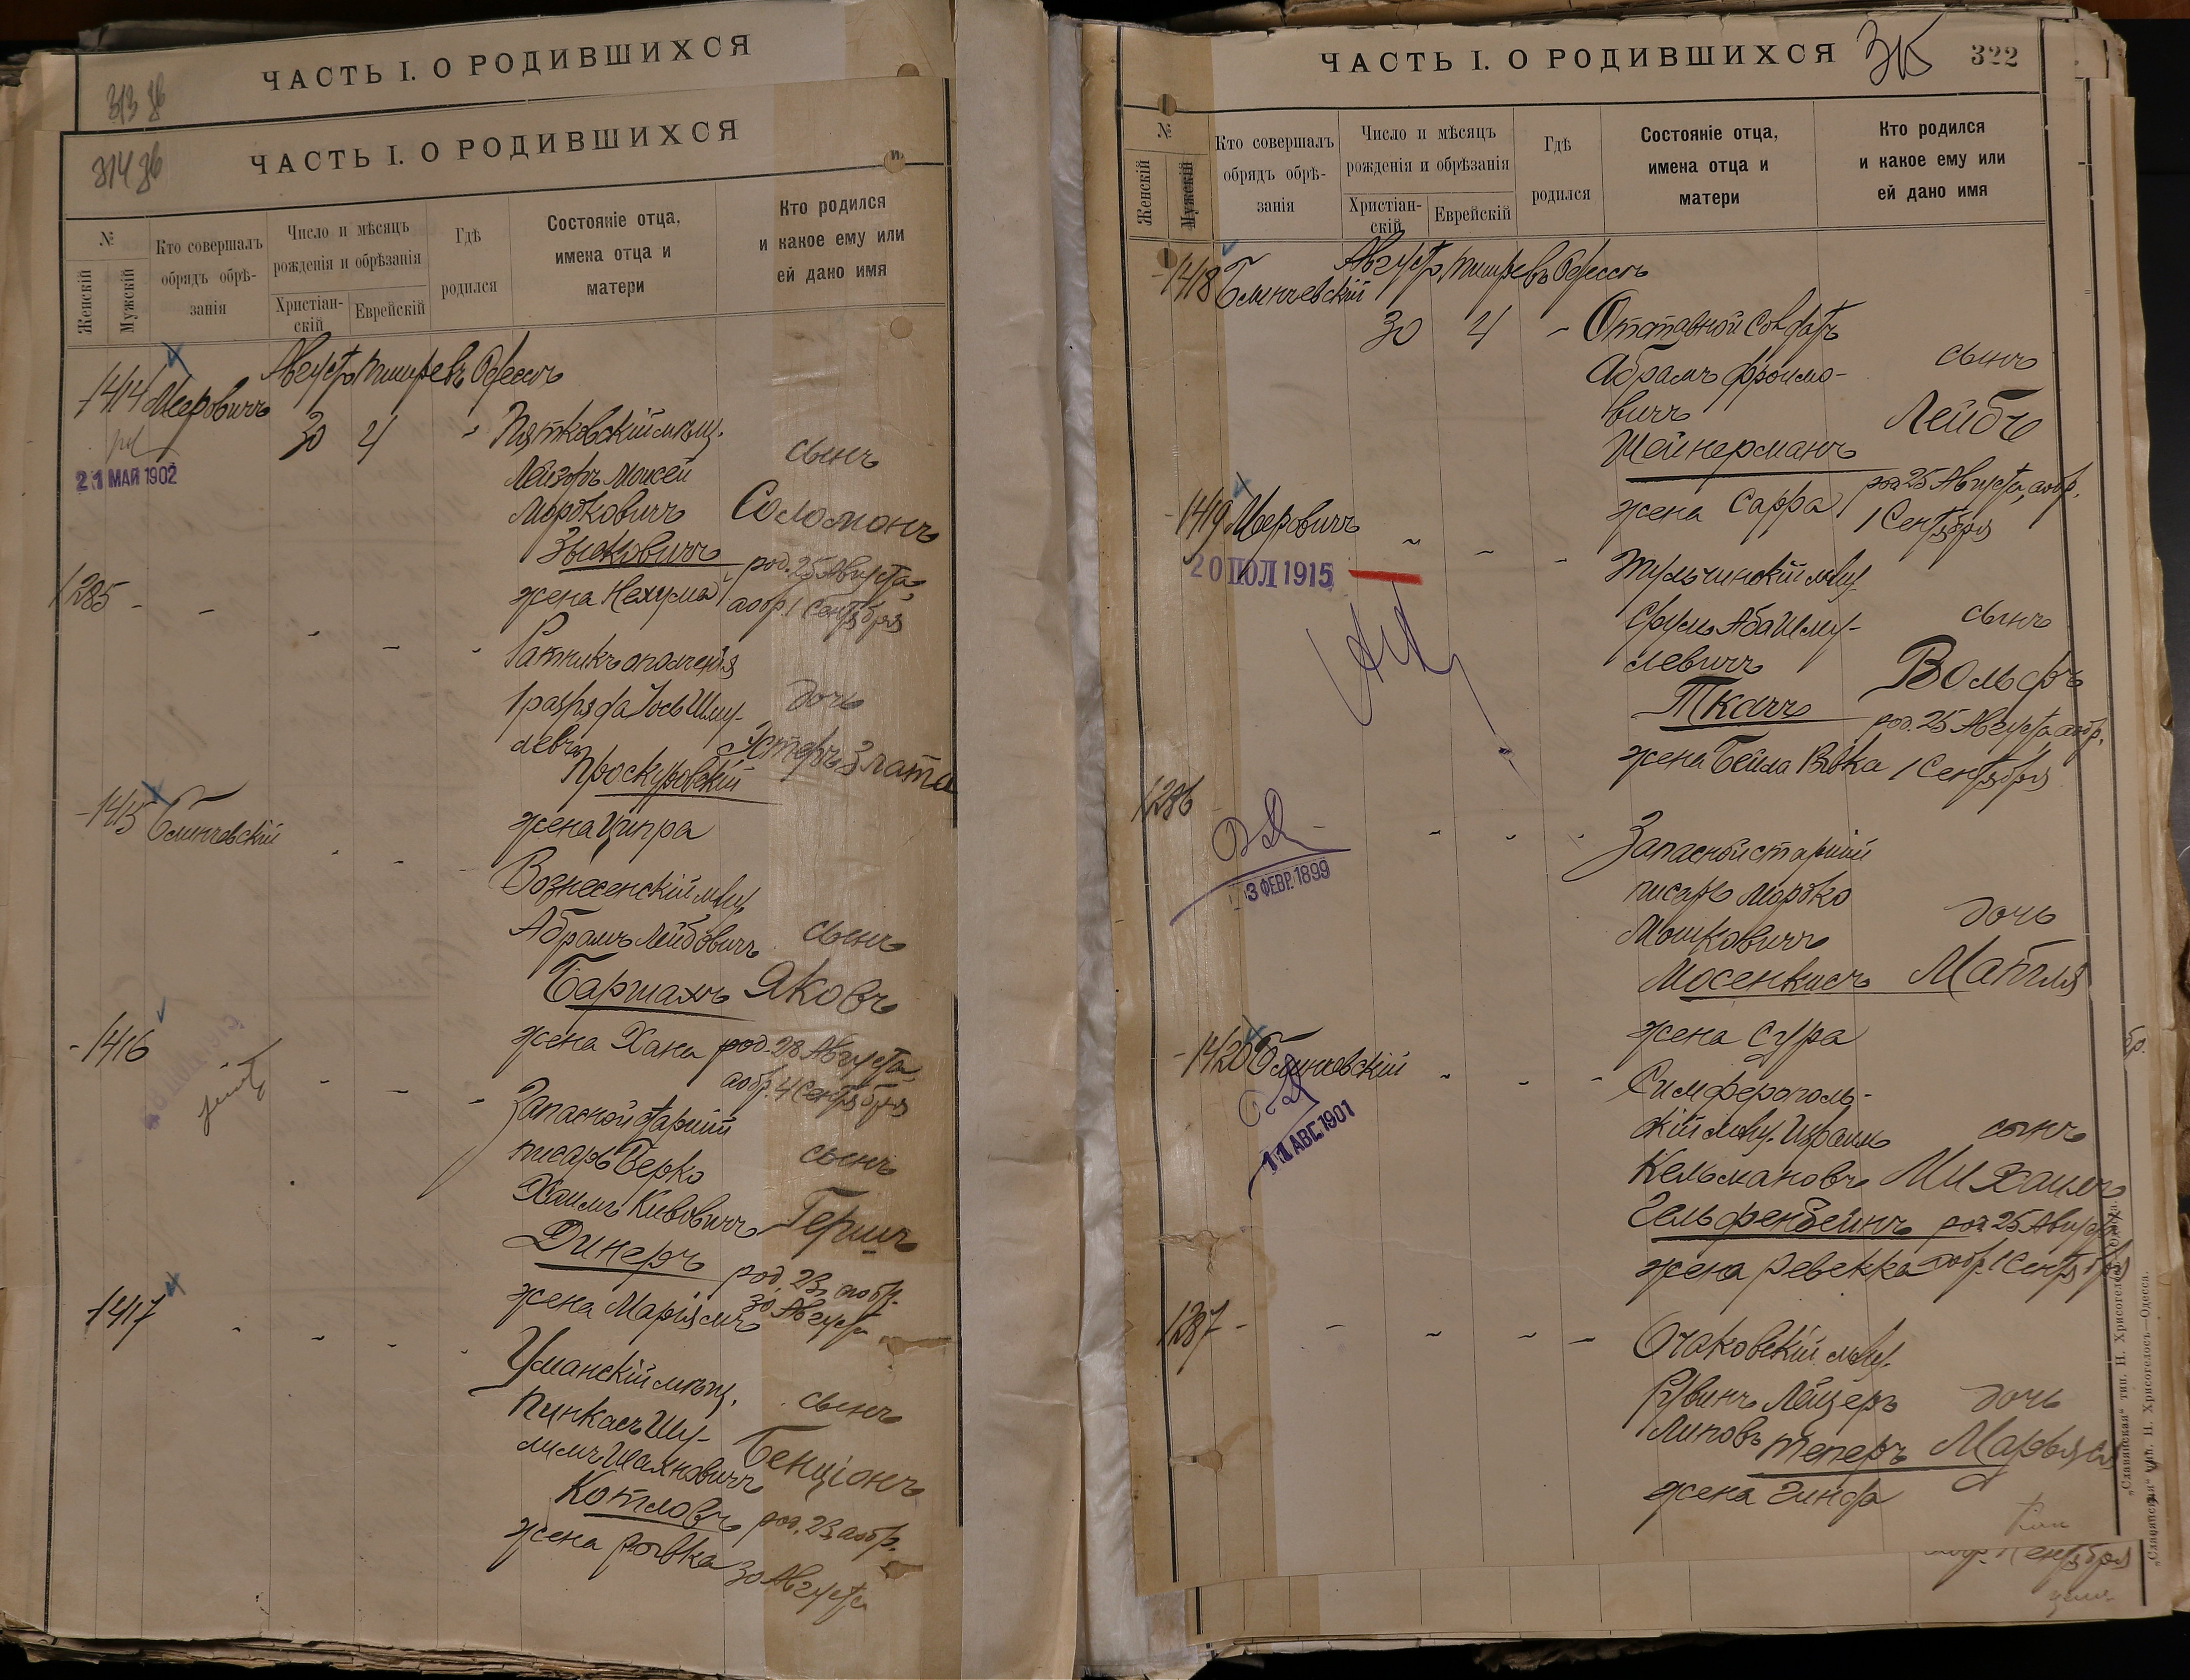 ЧАСТЬ I. О РОДИВШИХСЯ
ЧАСТЬ I. О РОДИВШИХСЯ
№
Женскій
Мужскій
Кто совершалъ
обрядъ обрѣ-
занія
Число и мѣсяцъ
рожденія и обрѣзанія
Христіан-
скій
Еврейскій
Гдѣ
родился
Состояніе отца,
имена отца и
матери
Кто родился
и какое ему или
ей дано имя
Августъ Тишре въ Одессѣ
1414 Меровичъ
30 4
21 МАЙ 1902
Пятковскій мѣщ.
Лейзоръ Моисей
Мордковичъ
Зысковичъ
жена Нехума
сынъ
Соломонъ
род. 25 Августа,
а обр. 1 Сентября
1285
Ратникъ ополченія
1 разряда Іось Шму-
левъ
Проскуровскій
жена Ципра
дочь
Эстеръ Злата
1415 Блинчевскій
Вознесенскій мѣщ.
Абрамъ Лейбовичъ
Баршахъ
жена Хана
сынъ
Яковъ
род. 28 Августа
а обр. 4 Сентября
1416
Запасной старшій
писарь Берко
Хаимъ Кивовичъ
Динеръ
жена Маріямъ
сынъ
Гершъ
род. 23, а обр.
30 Августа
1417
Уманскій мѣщ.
Пинкасъ Шу-
лимъ Шахновичъ
Котловъ
жена Рывка
сынъ
Бенціонъ
род. 23 а обр.
30 Августа
ЧАСТЬ I. О РОДИВШИХСЯ
315
322
№
Женскій
Мужскій
Кто совершалъ
обрядъ обрѣ-
занія
Число и мѣсяцъ
рожденія и обрѣзанія
Христіан-
скій
Еврейскій
Гдѣ
родился
Состояніе отца,
имена отца и
матери
Кто родился
и какое ему или
ей дано имя
Августъ Тишре въ Одессѣ
1418 Блинчевскій
30 4
Отставной Солдатъ
Абрамъ Фроимо-
вичъ
Шейнерманъ
жена Сарра
сынъ
Лейбъ
род 25 Августа, а обр.
1 Сентября
1419 Меровичъ
20 ІЮЛ 1915
Тульчинскій мѣщ.
Сруль Аба Шму-
левичъ
Ткачъ
жена Бейла Рывка
сынъ
Вольфъ
род. 25 Августа а обр.
1 Сентября
1286
3 ФЕВР. 1899
Запасной старшій
писарь Мордко
Мошковичъ
Мосенкисъ
жена Сура
дочь
Матля
1420 Блинчевскій
11 АВГ. 1901
Симферополь-
скій мѣщ. Израиль
Кельмановъ
Гельфенбейнъ
жена Ревекка
сынъ
Михаилъ
род 25 Августа
а обр. 1 Сентября
1287
Очаковскій мѣщ.
Рувинъ Лейзеръ
Липовъ Теперъ
жена Гинда
дочь
Марьясъ
„Славянская“ тип. Н. Хрисогелосъ—Одесса.